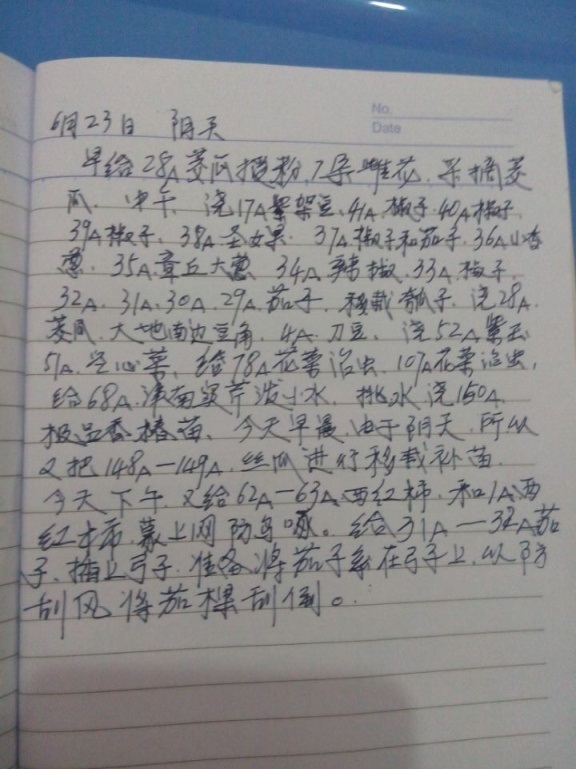 No.
Date
6月23日 阴天
早给28A茭瓜授粉,7朵雌花,采摘茭
瓜.中午.浇17A紫架豆.41A椒子.40A椒子.
39A椒子.38A圣女果.37A椒子和茄子.36A小香
葱.35A章丘大葱 34A辣椒.33A.椒子.
32A.31A.30A.29A.茄子.移栽瓠子.浇28A.
茭瓜.大地南边豆角.4A.刀豆.浇52A紫
51A.空心菜.给78A花菜治虫.107A花菜治虫,
给68A.津南实芹泼小水.挑水浇150A.
极品香椿苗.今天早晨.由于阴天.所以
又把148A—149A.丝瓜进行移栽补苗.
今天下午 又给62A—63A.西红柿.和1A西
红柿.蒙上网防鸟啄。给31A—32A茄
子.插上弓子.准备将茄子系在弓子上.以防
刮风将茄棵刮倒。